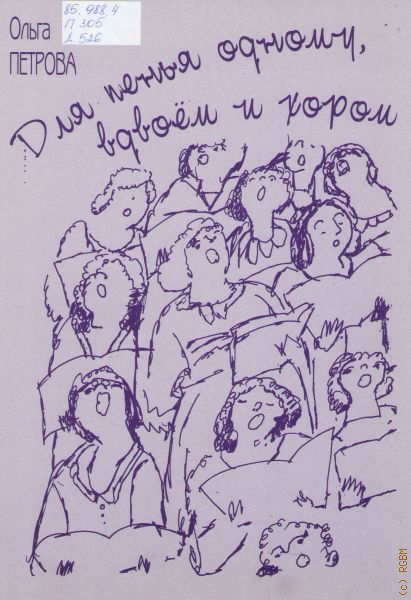 Ольга
ПЕТРОВА
85.988.4
П 305
д 526
Для пенья одному,
вдвоём и хором
(c) RGBM